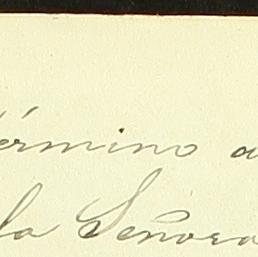 término a
la Señora